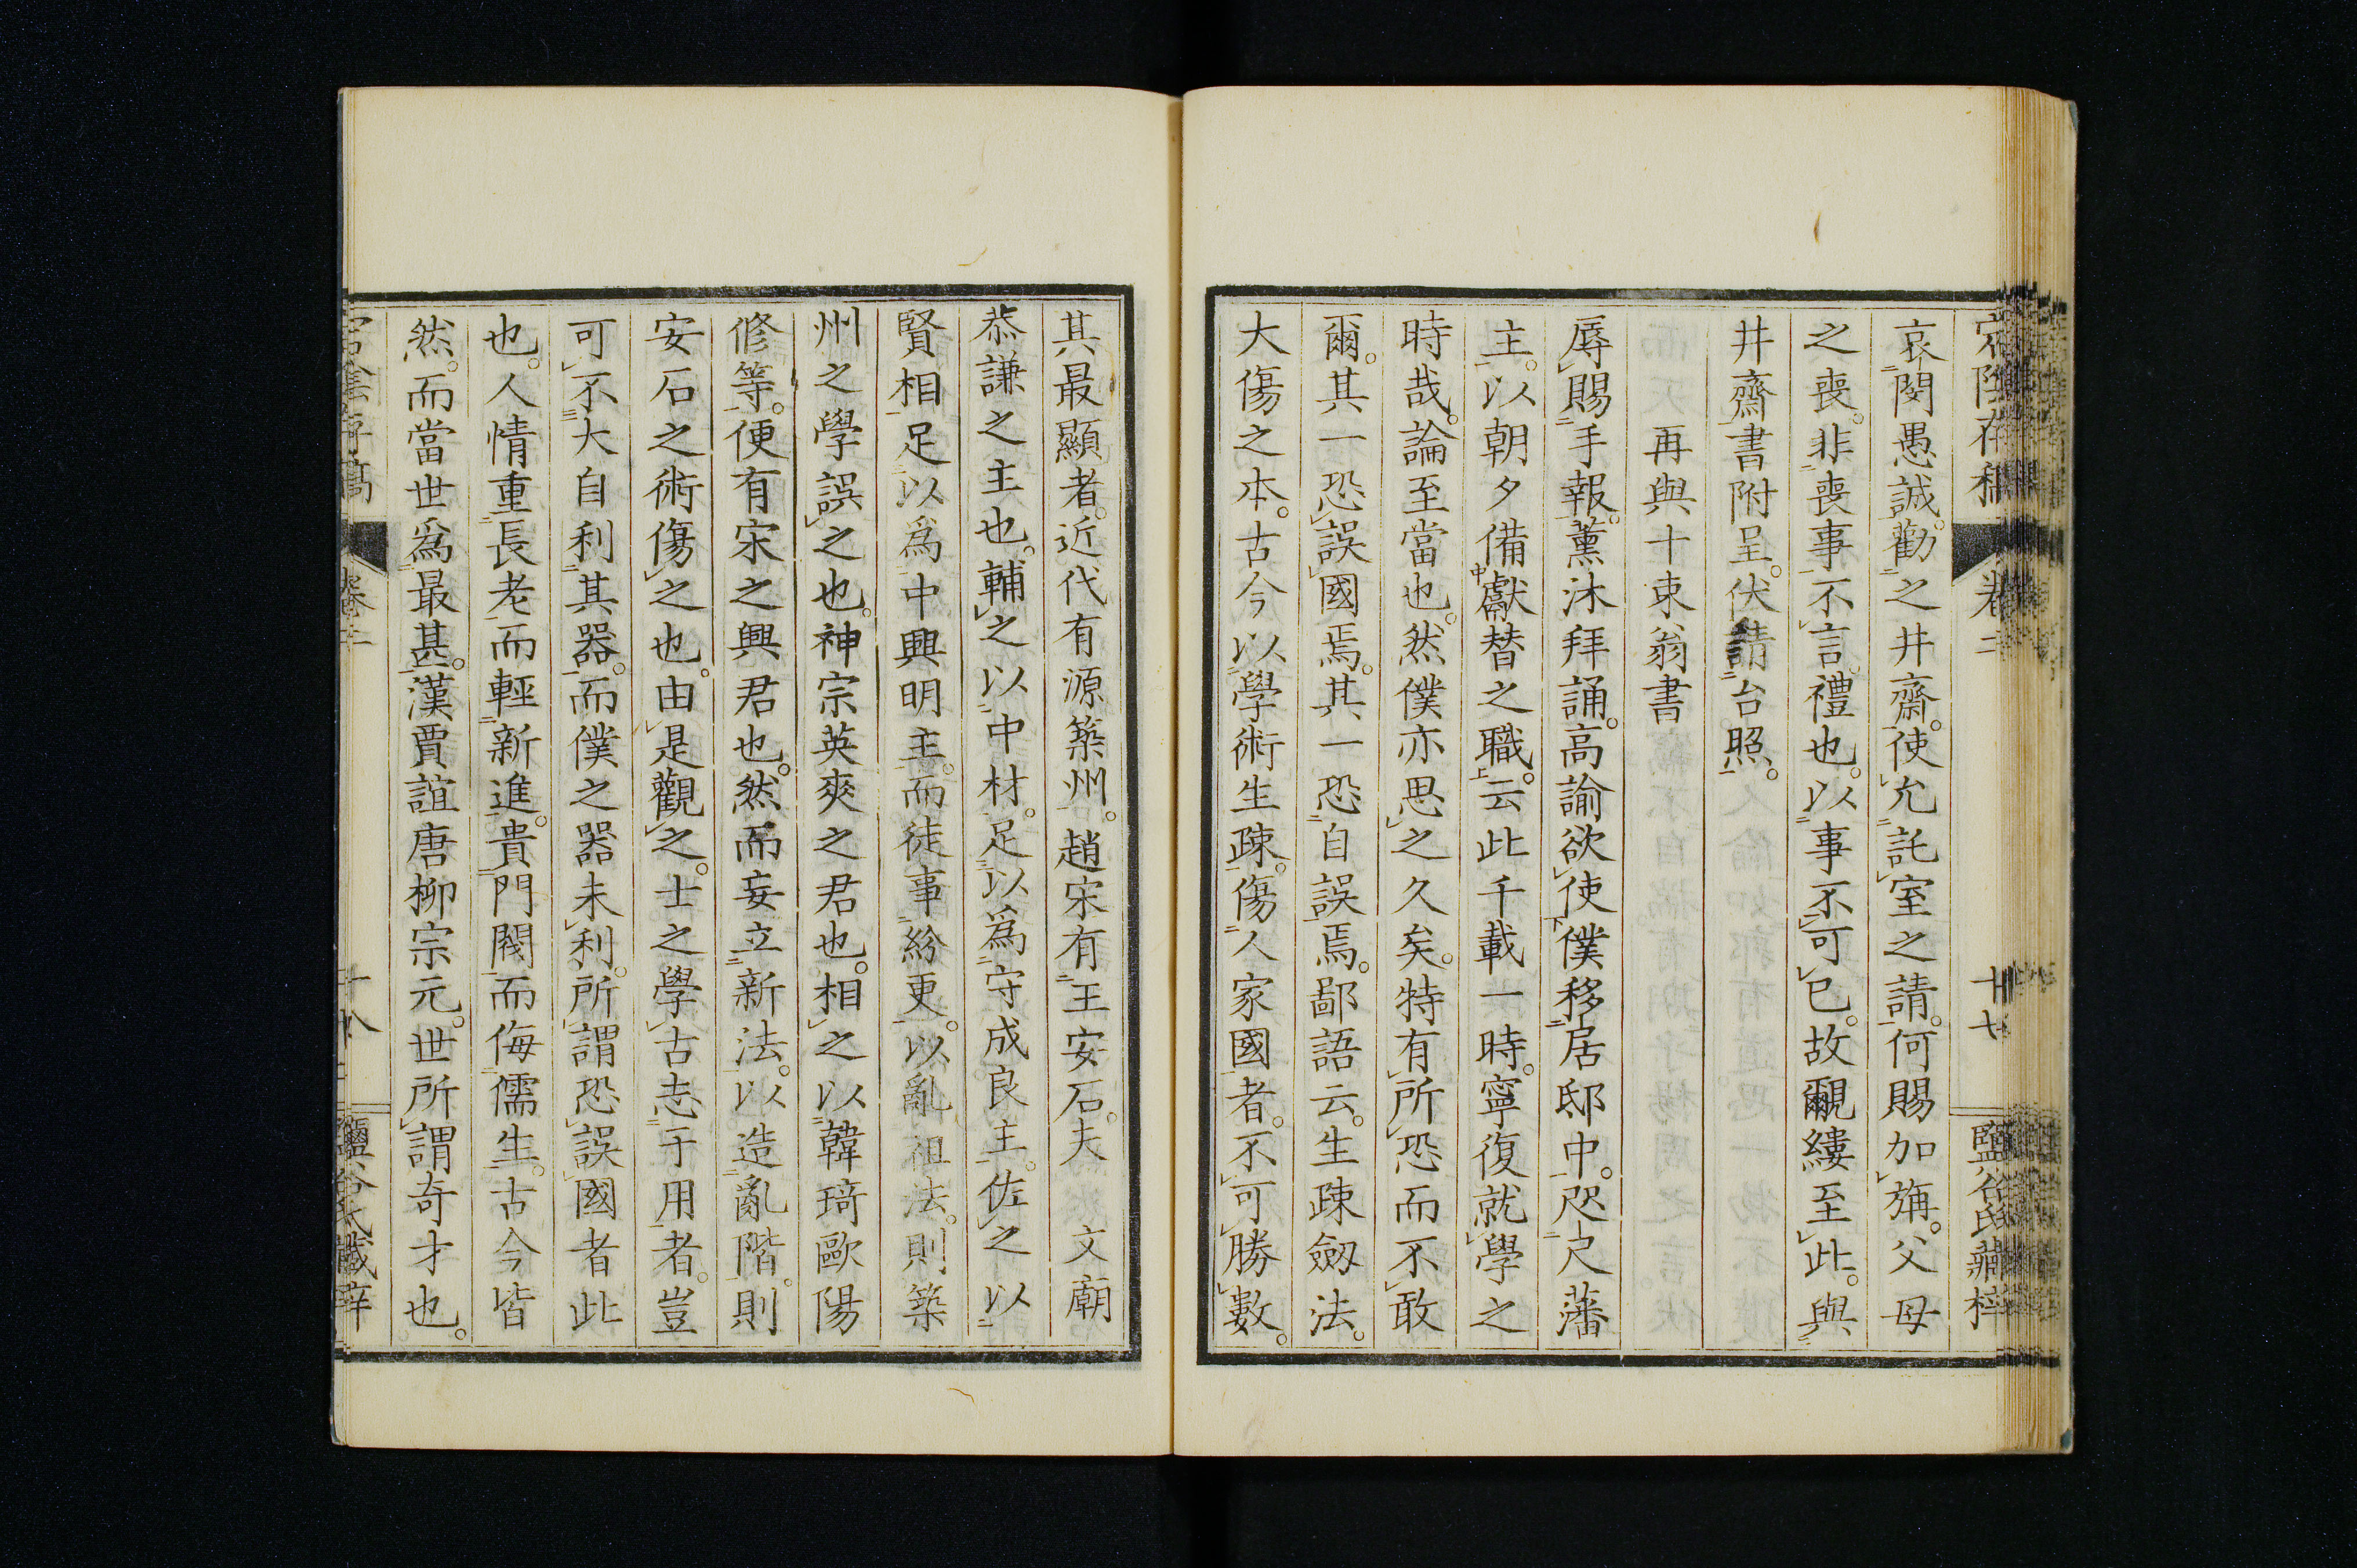 宕陰存稿 卷二 十七 鹽谷氏藏梓
哀閔愚誠。勸之井齋。使允託室之請。何賜加旃。父母
之喪。非喪事不言。禮也。以事不可已。故覼縷至此。與
井齋書附呈。伏請台照。
再與十束翁書
辱賜手報。薰沐拜誦。高諭欲使僕移居邸中。咫尺藩
主。以朝夕備獻替之職。云此千載一時。寧復就學之
時哉。論至當也。然僕亦思之久矣。特有所恐而不敢
爾。其一恐誤國焉。其一恐自誤焉。鄙語云。生疎劔法。
大傷之本。古今以學術生疎。傷人家國者。不可勝數。
其最顯者。近代有源築州。趙宋有王安石。夫 文廟
恭謙之主也。輔之以中材。足以爲守成良主。佐之以
賢相足以爲中興明主。而徒事紛更。以亂祖法。則築
州之學誤之也。神宗英爽之君也。相之以韓琦歐陽
修等。便有宋之興君也。然而妄立新法。以造亂階。則
安石之術傷之也。由是觀之。士之學古志于用者。豈
可不大自利其器。而僕之器未利。所謂恐誤國者此
也。人情重長老而輕新進。貴門閥而侮儒生。古今皆
然。而當世爲最甚。漢賈誼唐柳宗元。世所謂奇才也。
宕陰存稿 卷二 十八 鹽谷氏藏梓